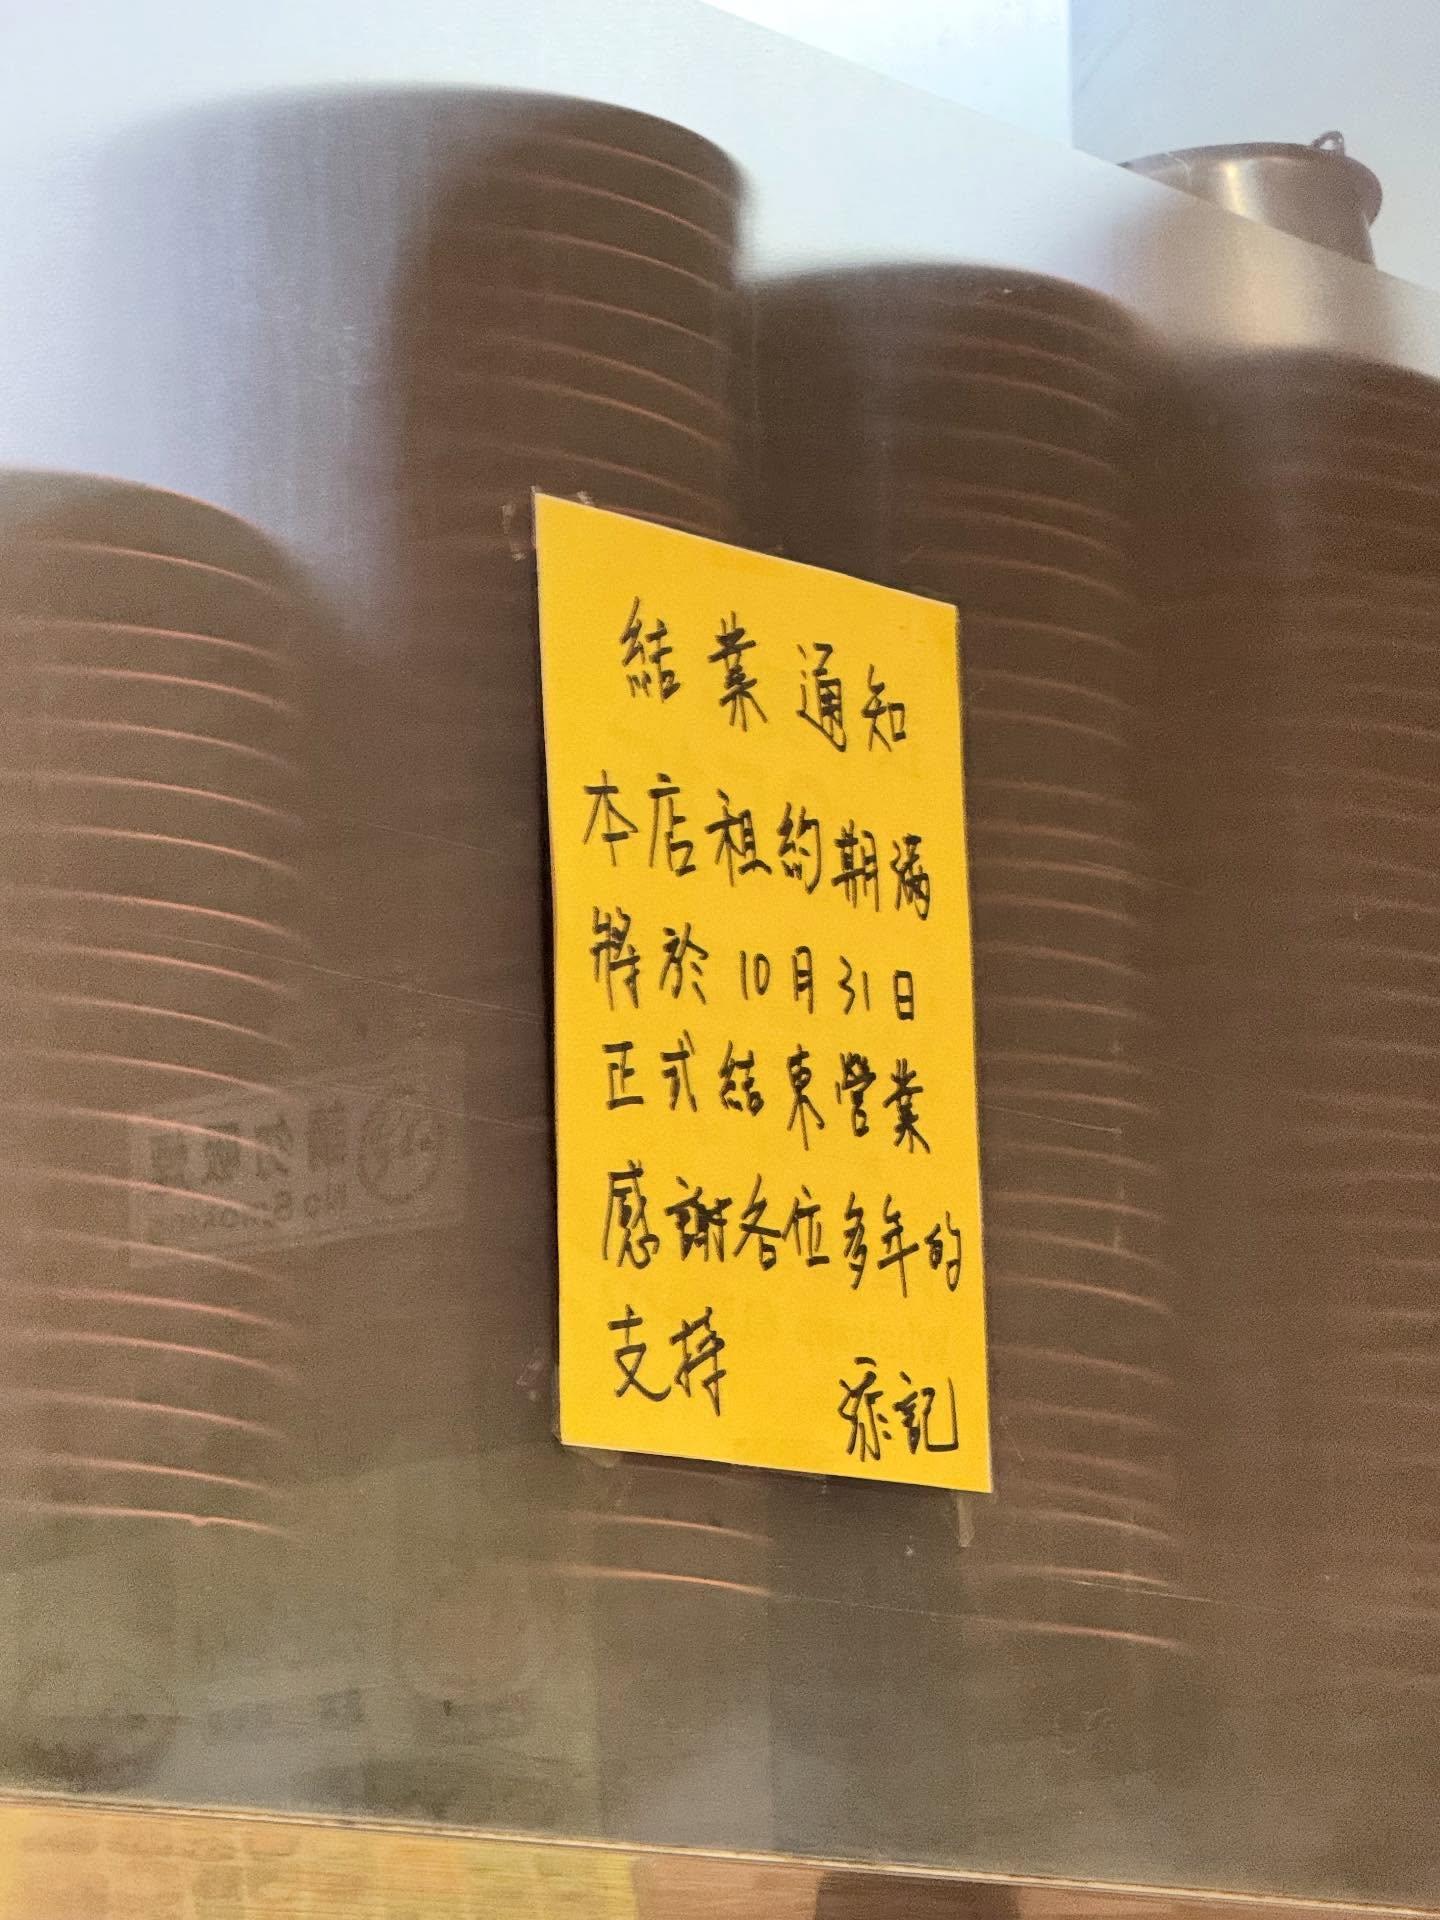 結業通知
本店租約期滿
將於10月31日
正式結束營業
感謝各位多年的
支持
添記
請勿吸煙
No Smoking